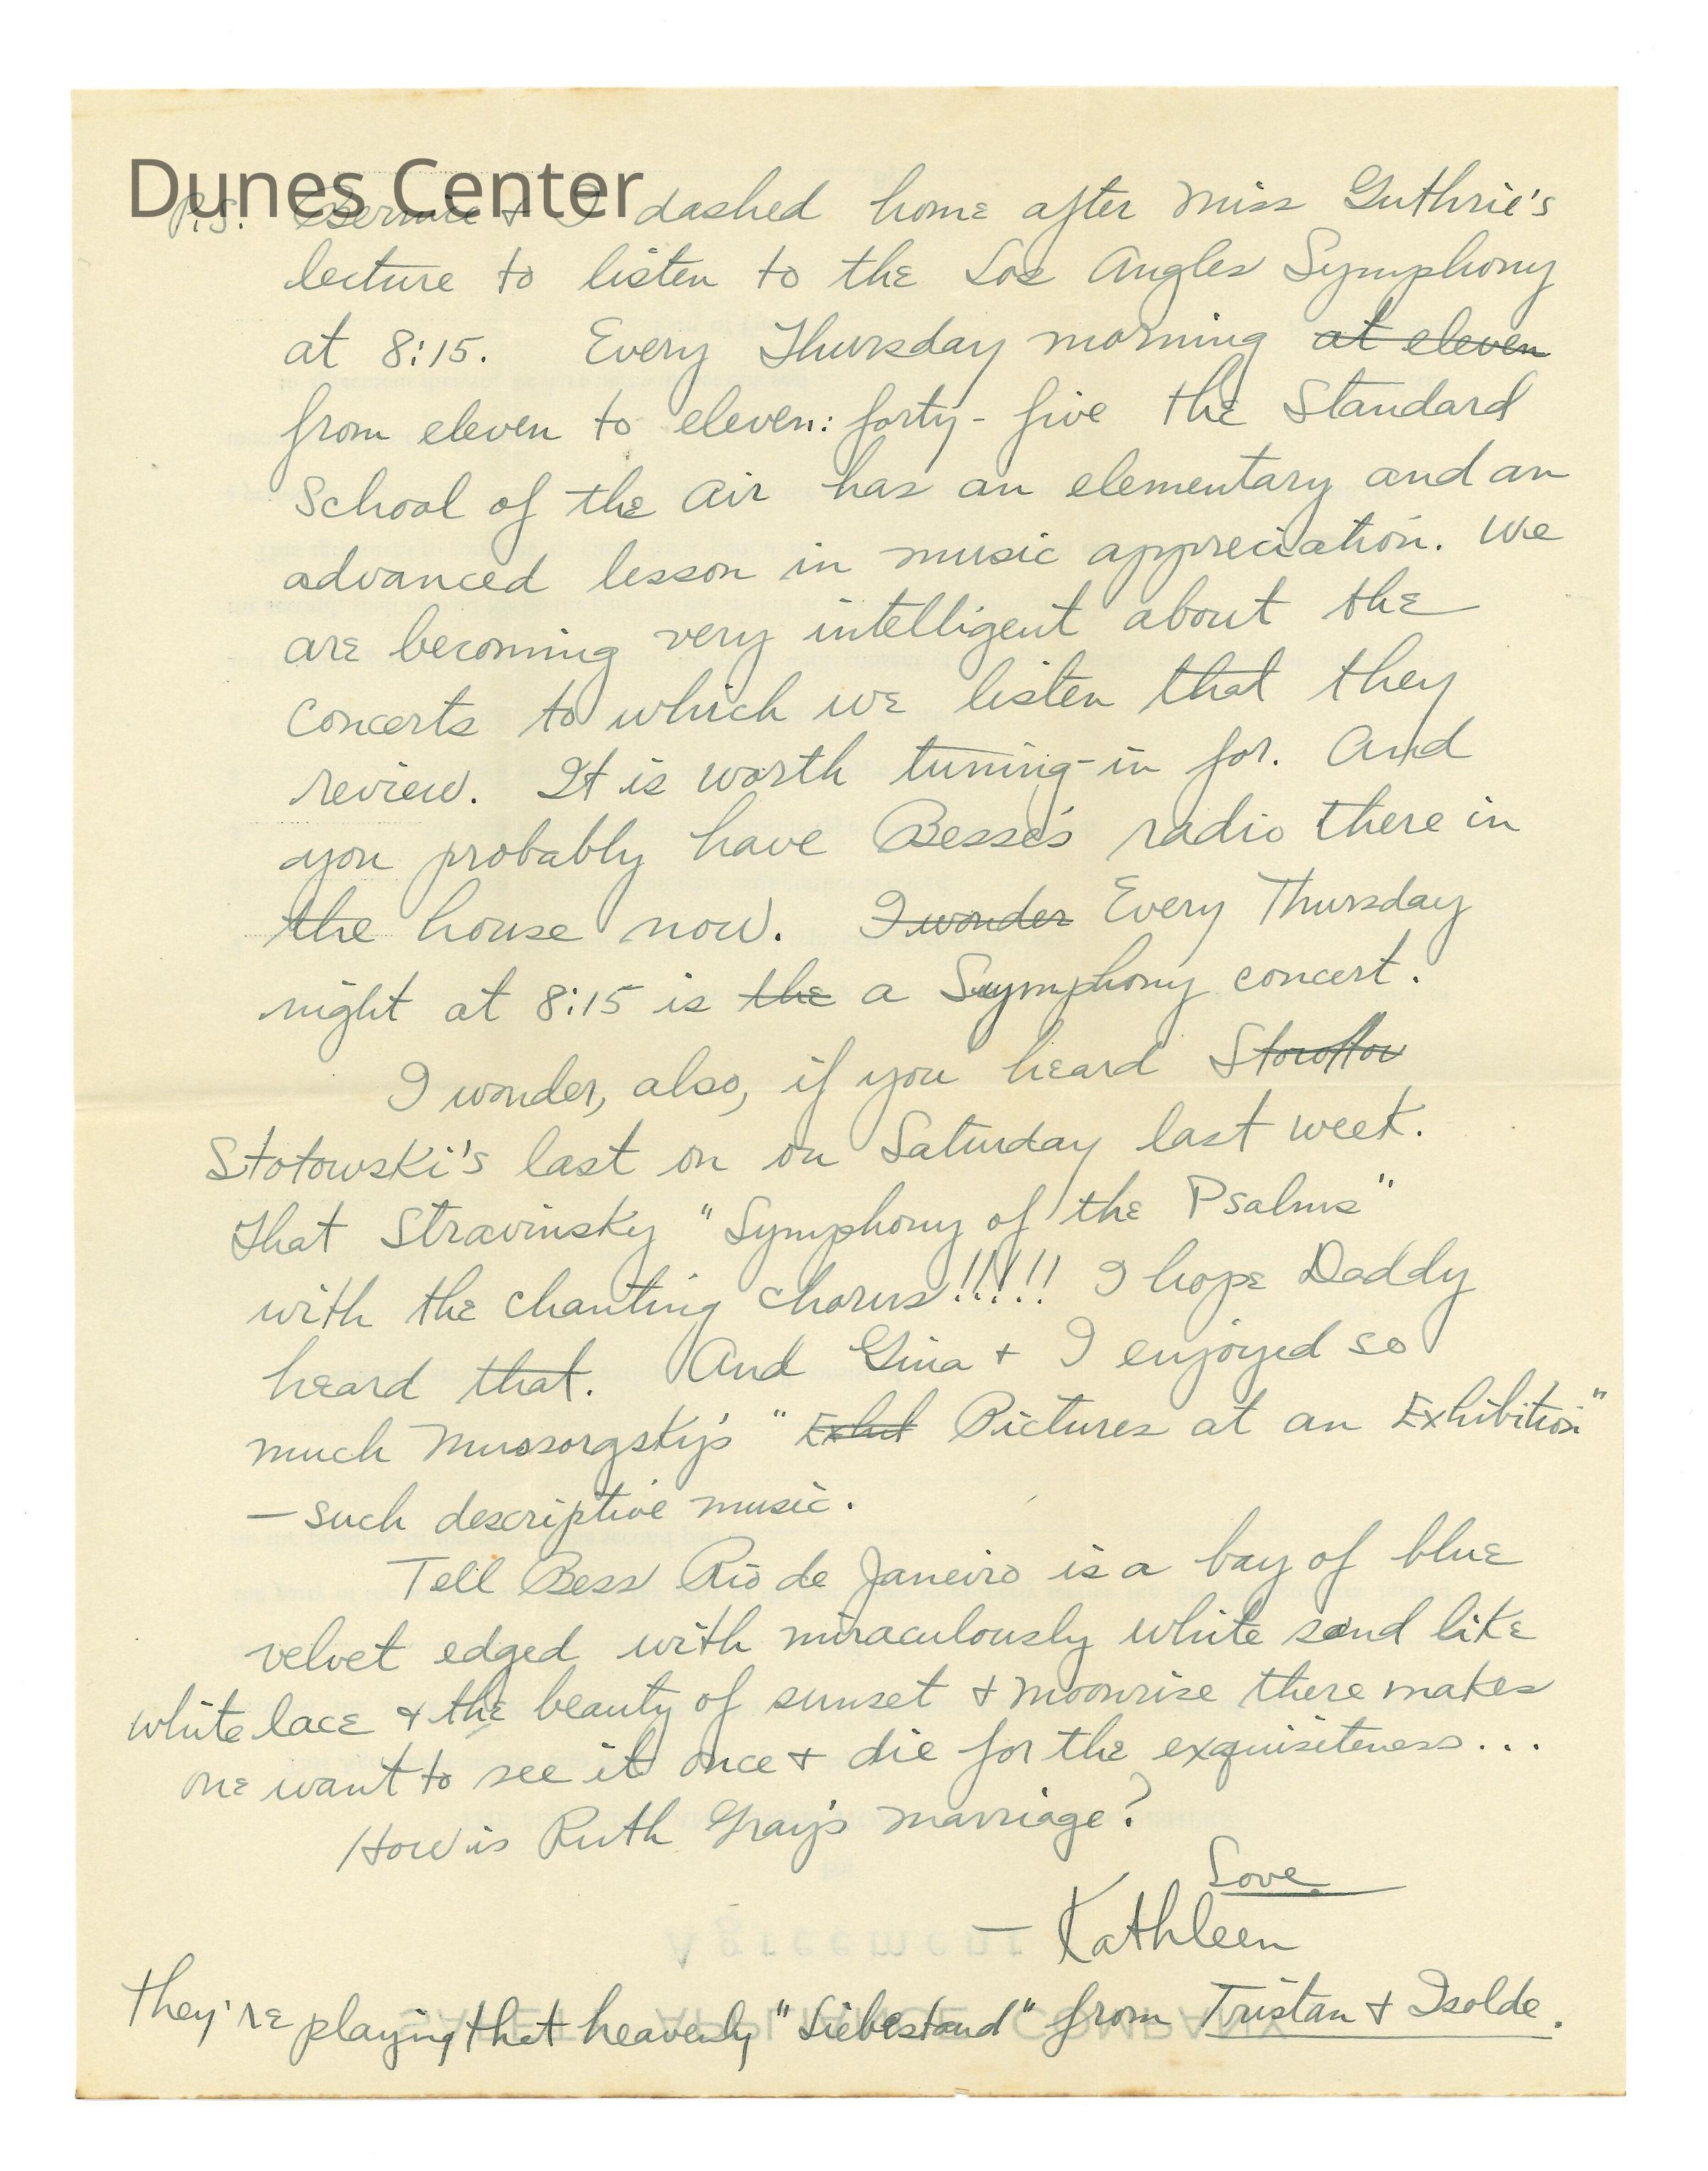 Dunes Center
P.S. Bernice & I dashed home after Miss Guthrie's
lecture to listen to the Los Angles Symphony
at 8:15. Every Thursday morning at eleven
from eleven to eleven: forty-five the Standard
School of the Air has an elementary and an
advanced lesson in music appreciation. We
are becoming very intelligent about the
concerts to which we listen that they
review. It is worth tuning-in for. And
you probably have Besse's radio there in
the house now. I wonder Every Thursday
night at 8:15 is the a Symphony concert.
I wonder, also, if you heard
Stotowski's last on on Saturday last week.
That Stravinsky "Symphony of the Psalms"
with the chanting chorus!!!!! I hope Daddy
heard that. And Gina + I enjoyed so
much Mussorgsky's "Exhit Pictures at an Exhibition"
— such descriptive music.
Tell Bess Rio de Janeiro is a bay of blue
velvet edged with miraculously white sand like
white lace & the beauty of sunset & moonrise there makes
one want to see it once & die for the exquisiteness...
How is Ruth Gray's marriage?
Love
— Kathleen
They're playing that heavenly "Liebestand" from Tristan & Isolde.